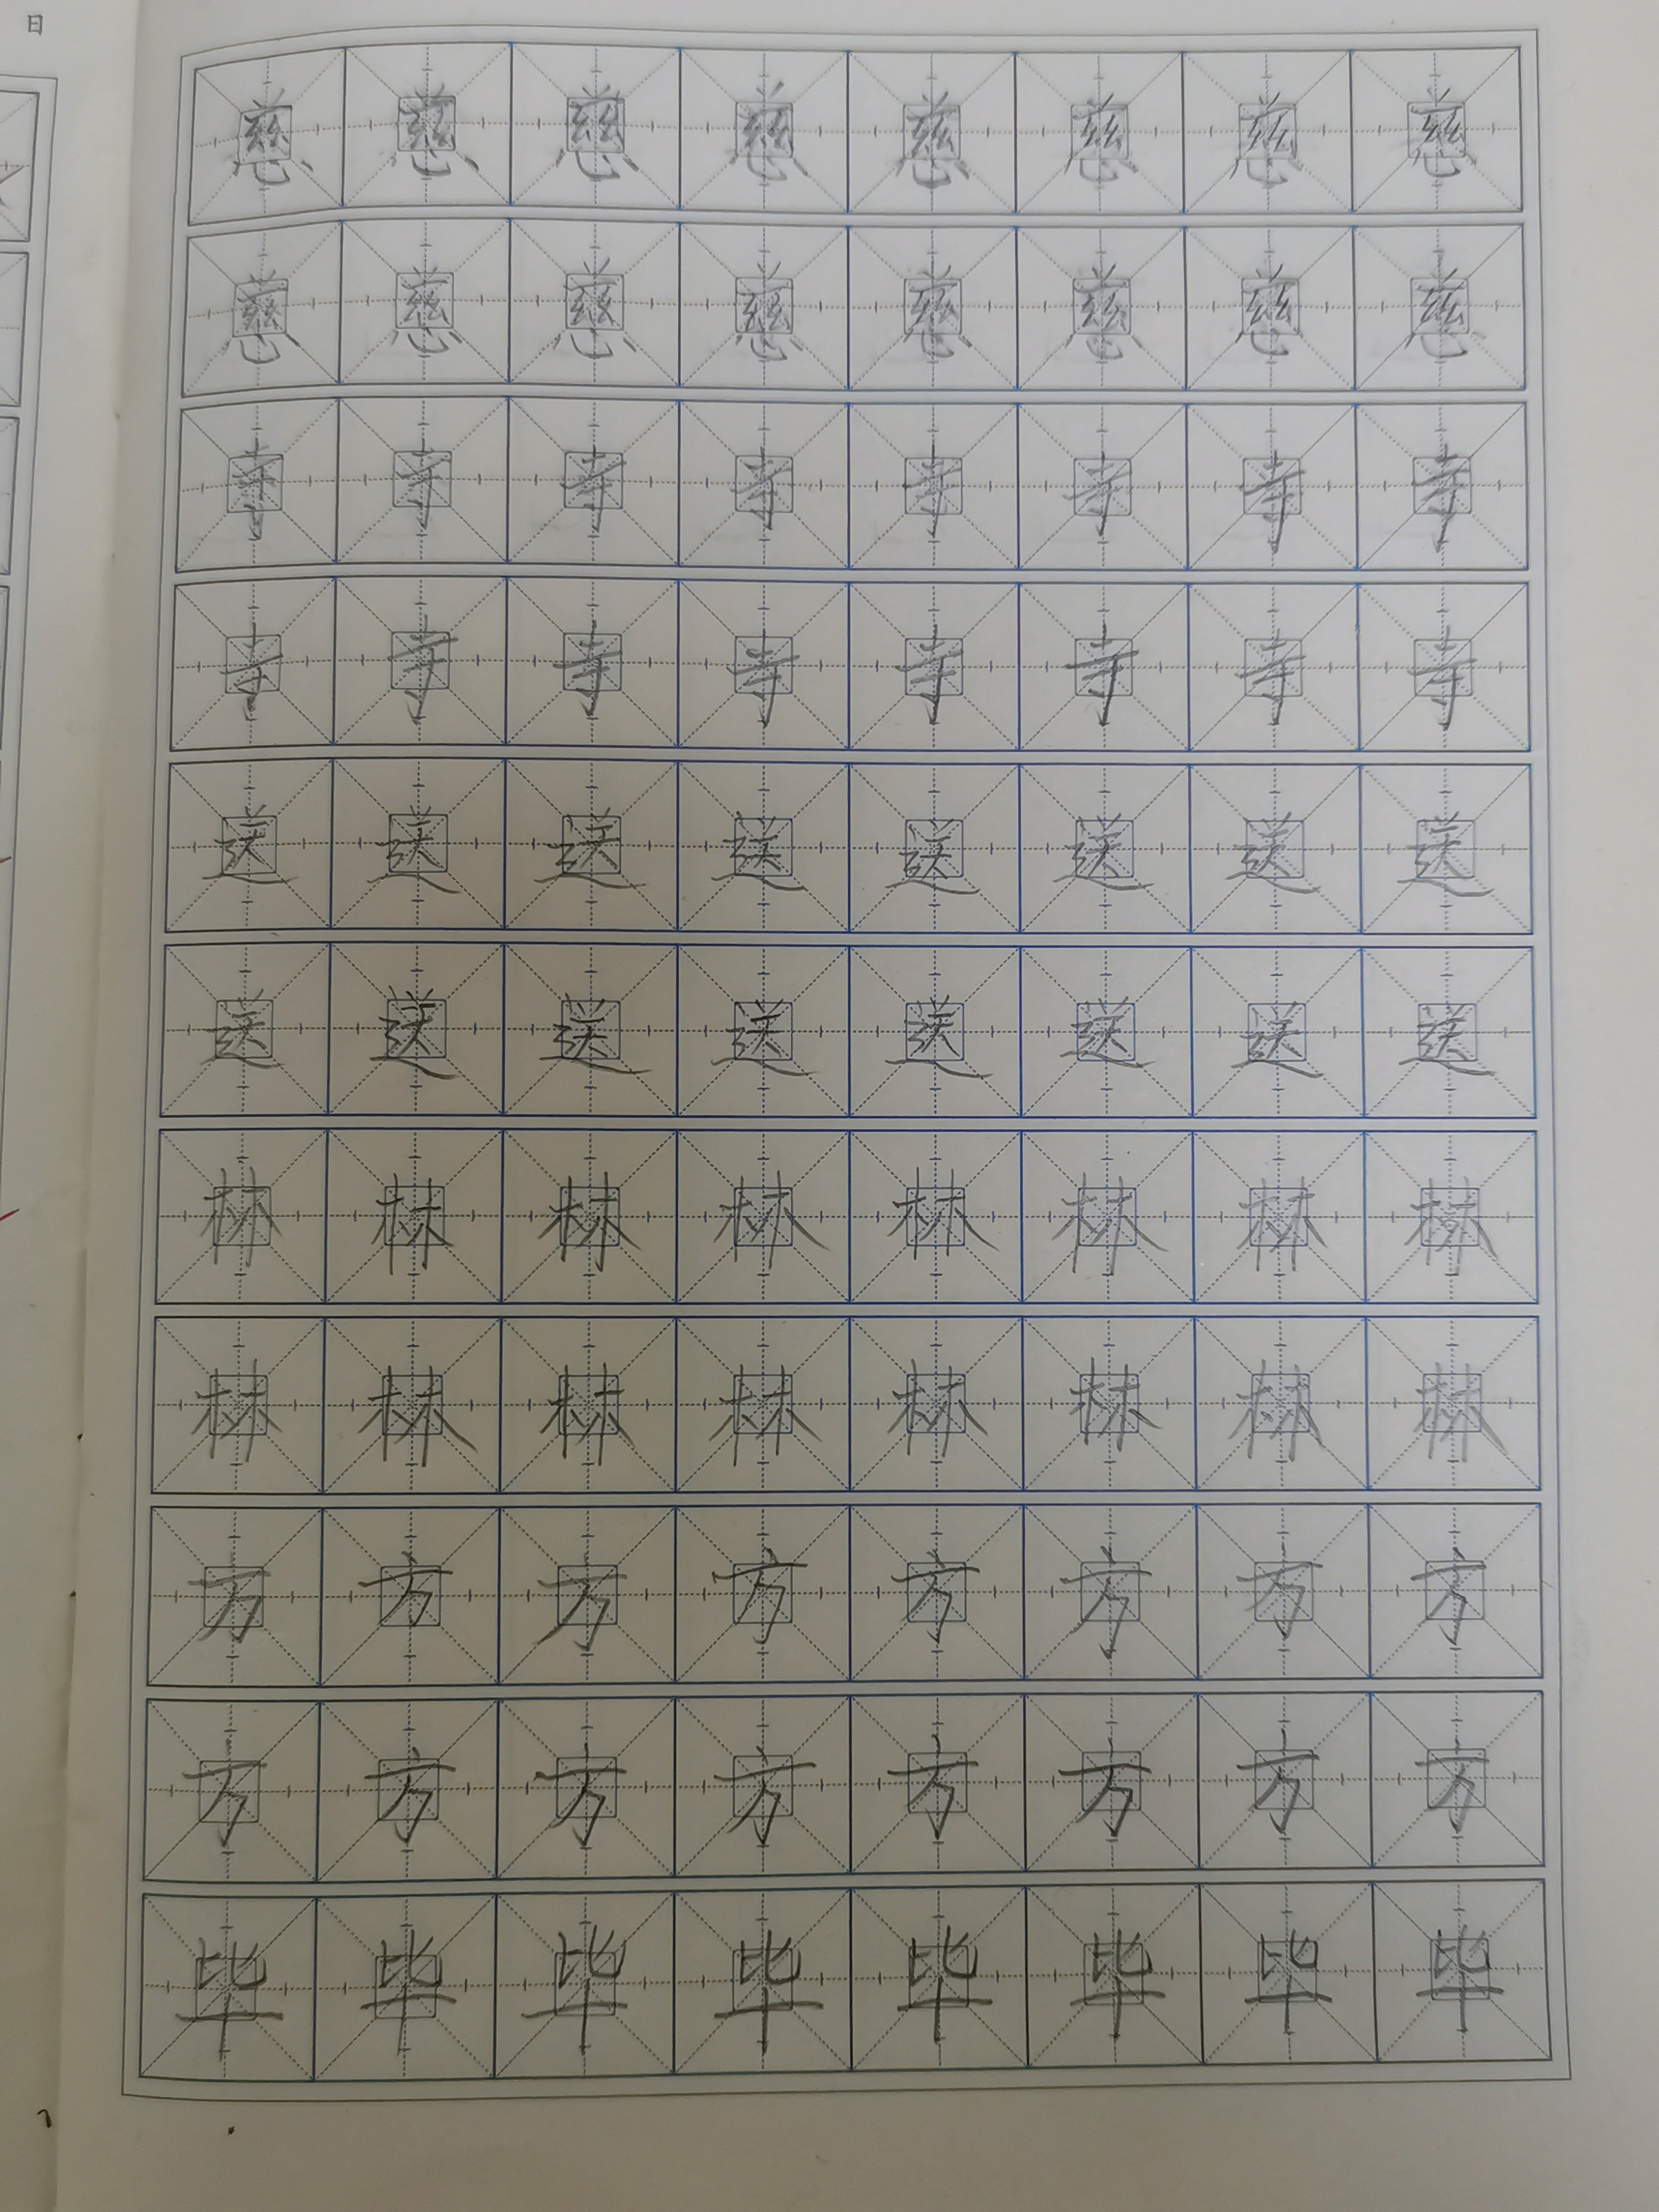 日
慈慈慈慈慈慈慈慈
慈慈慈慈慈慈慈慈
寺寺寺寺寺寺寺寺
寺寺寺寺寺寺寺寺
送送送送送送送送
送送送送送送送送
林林林林林林林林
林林林林林林林林
方方方方方方方方
方方方方方方方方
毕毕毕毕毕毕毕毕